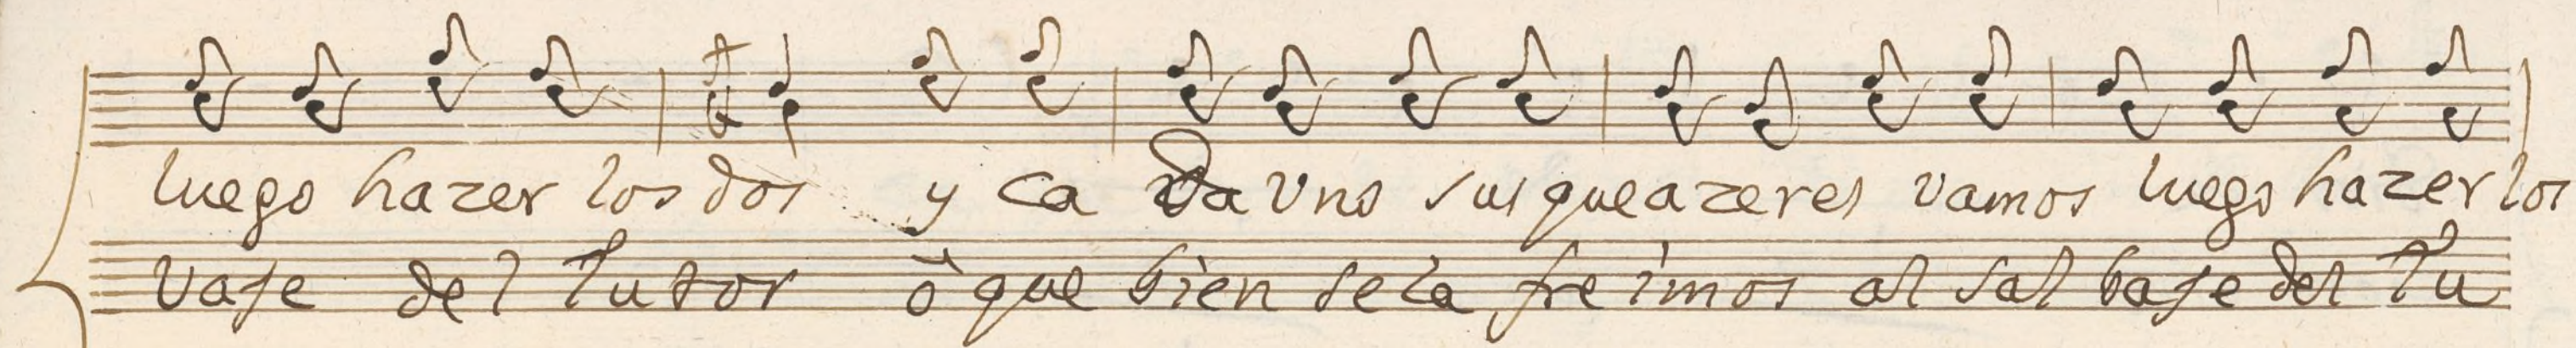 luego hazer los dos y ca da uno sus queazeres vamos luego hazer los
vaje del Tutor ò que bien se la freimos al sal baje del Tu